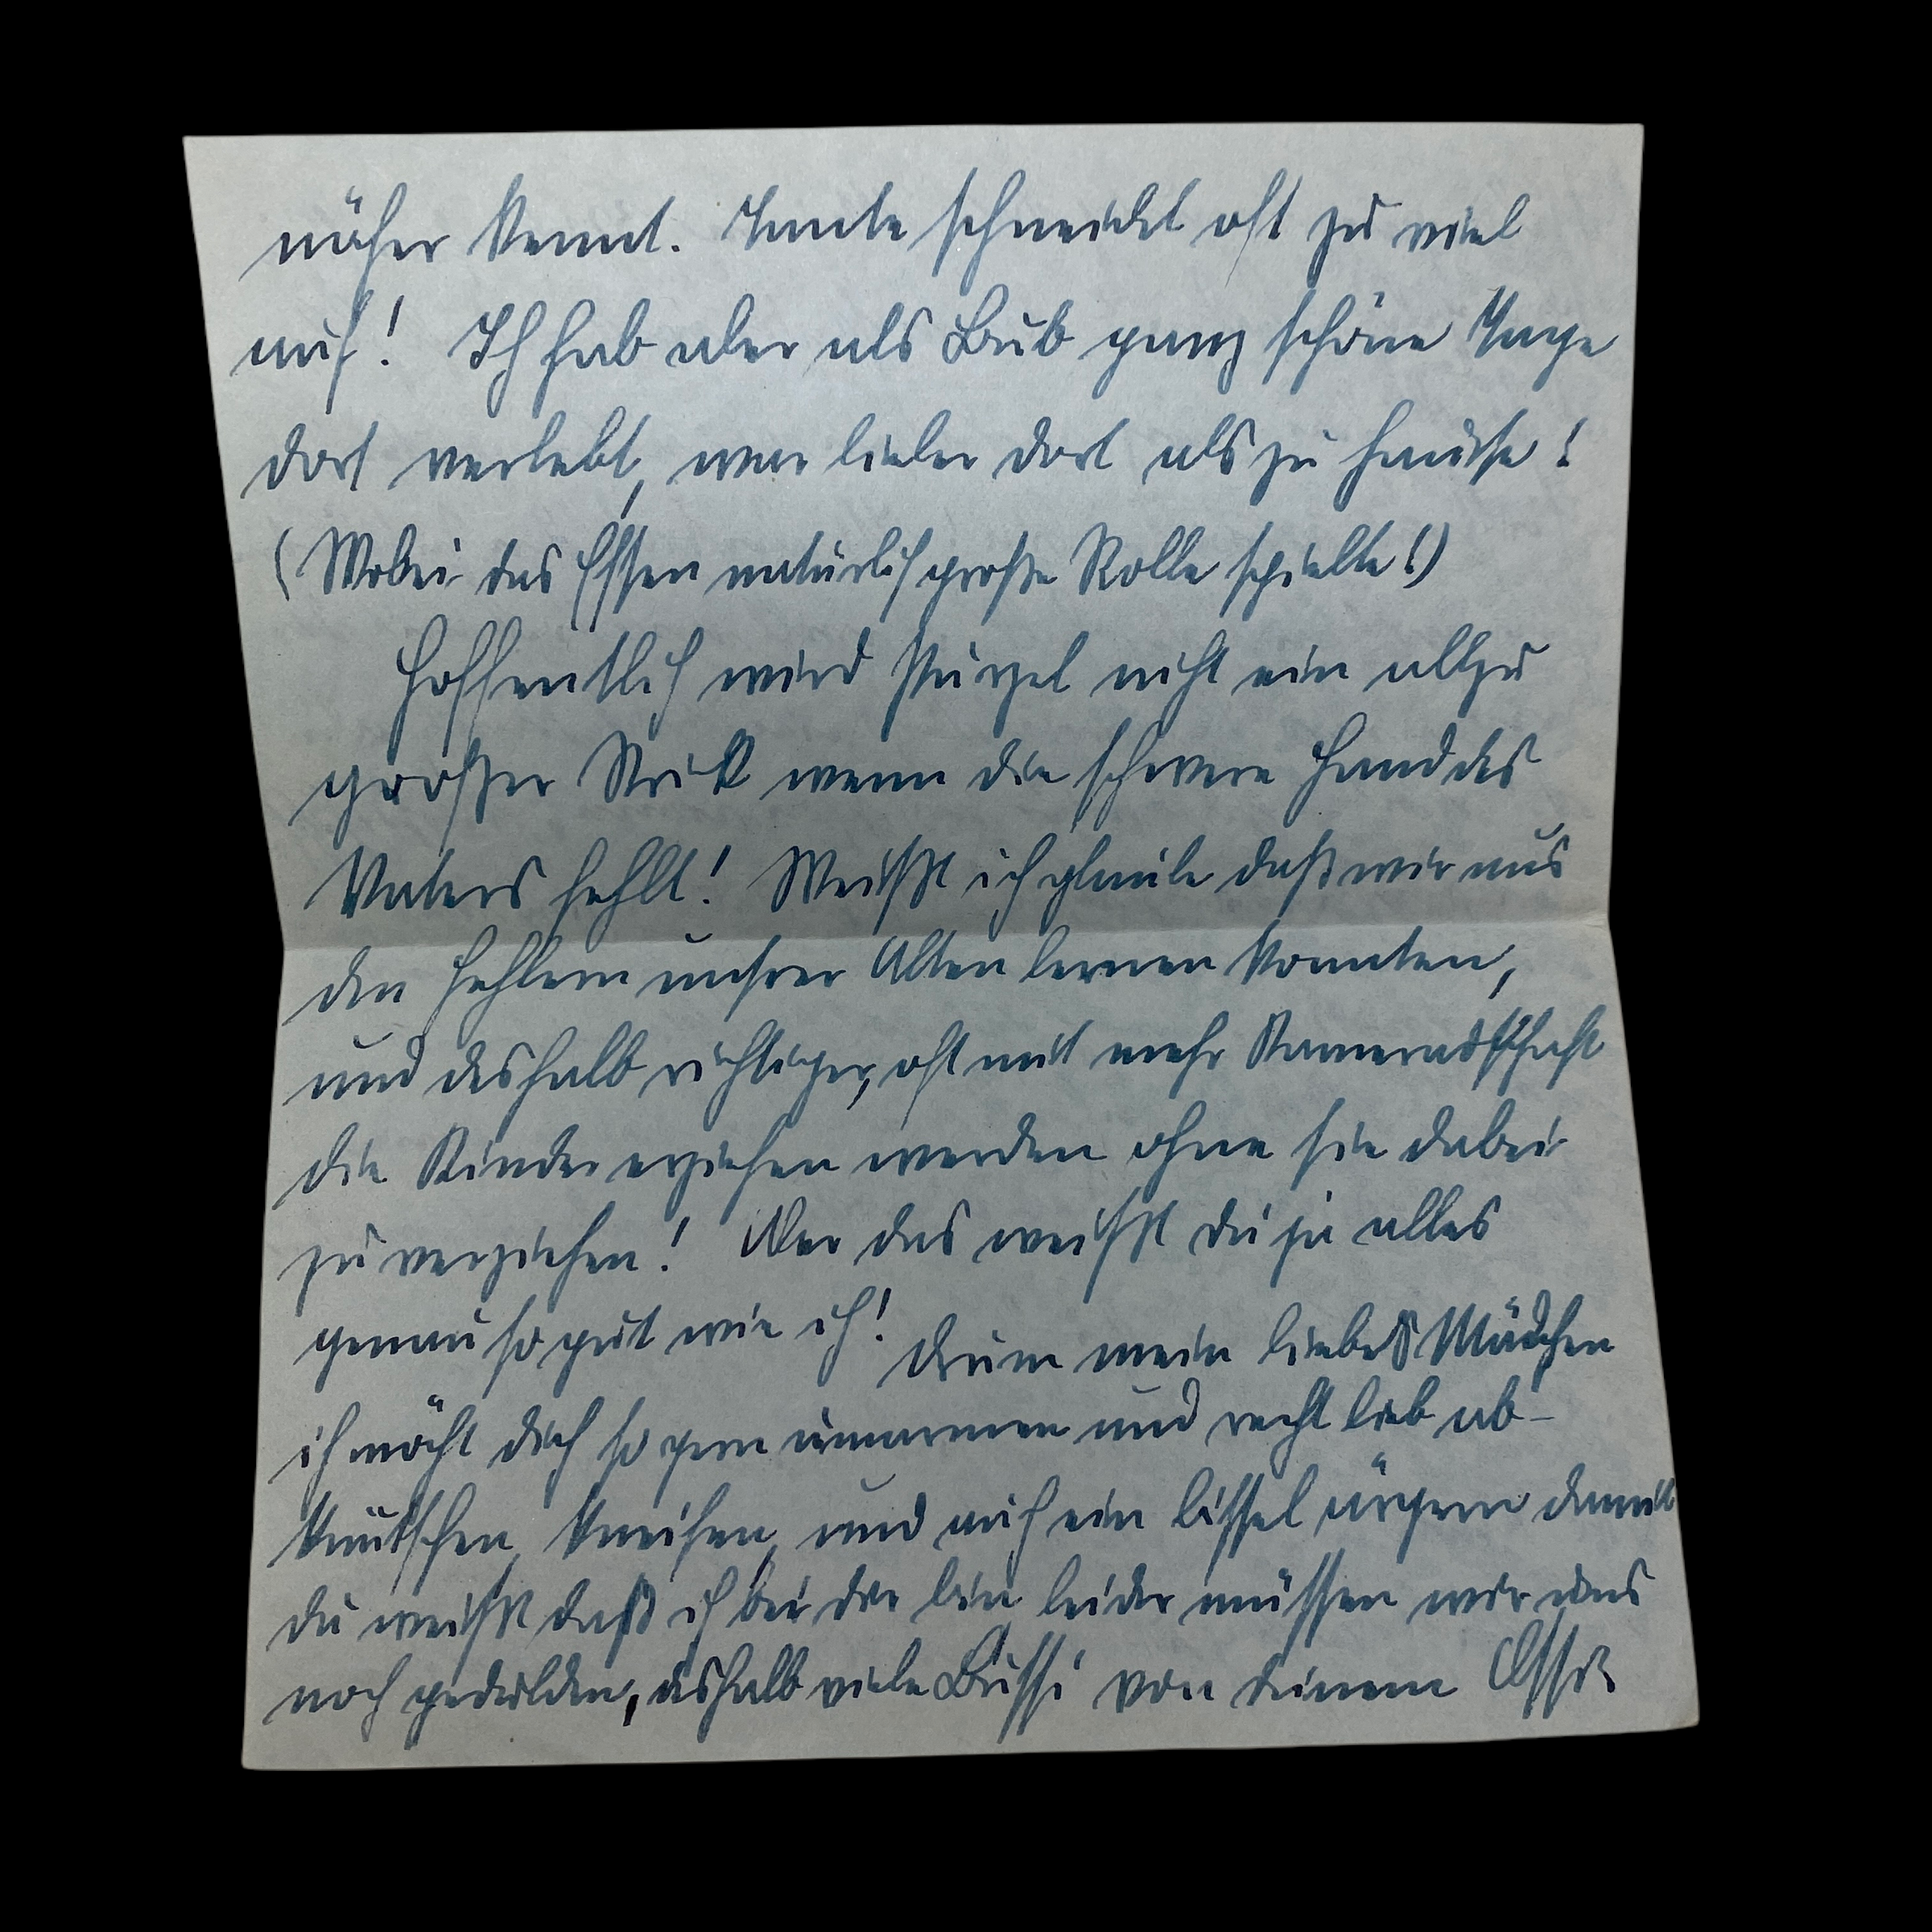 näher kennt. Tante schneidet oft zu viel
auf! Ich hab aber als Bub ganz schöne Tage
dort verlebt, war lieber dort als zu hause!
(Wobei das Essen natürlich große Rolle spielte!)
Hoffentlich wird Purzel nicht ein allzu
großer Strick wenn die schwere Hand des
Vaters fehlt! Weißt ich glaube daß wir aus
den Fehlern unsrer Alten lernen konnten,
und deshalb richtiger, oft mit mehr Kameradschaft
die Kinder erziehen werden ohne sie dabei
zu verziehen! Aber das weißt du ja alles
genau so gut wie ich! Drum mein liebes Mädchen
ich möcht dich so gern umarmen und recht lieb ab-
knutschen, kneifen, und auch ein bissel ärgern damit
du weißt daß ich bei dir bin leider müssen wir uns
noch gedulden, deshalb viele Bussi von deinem